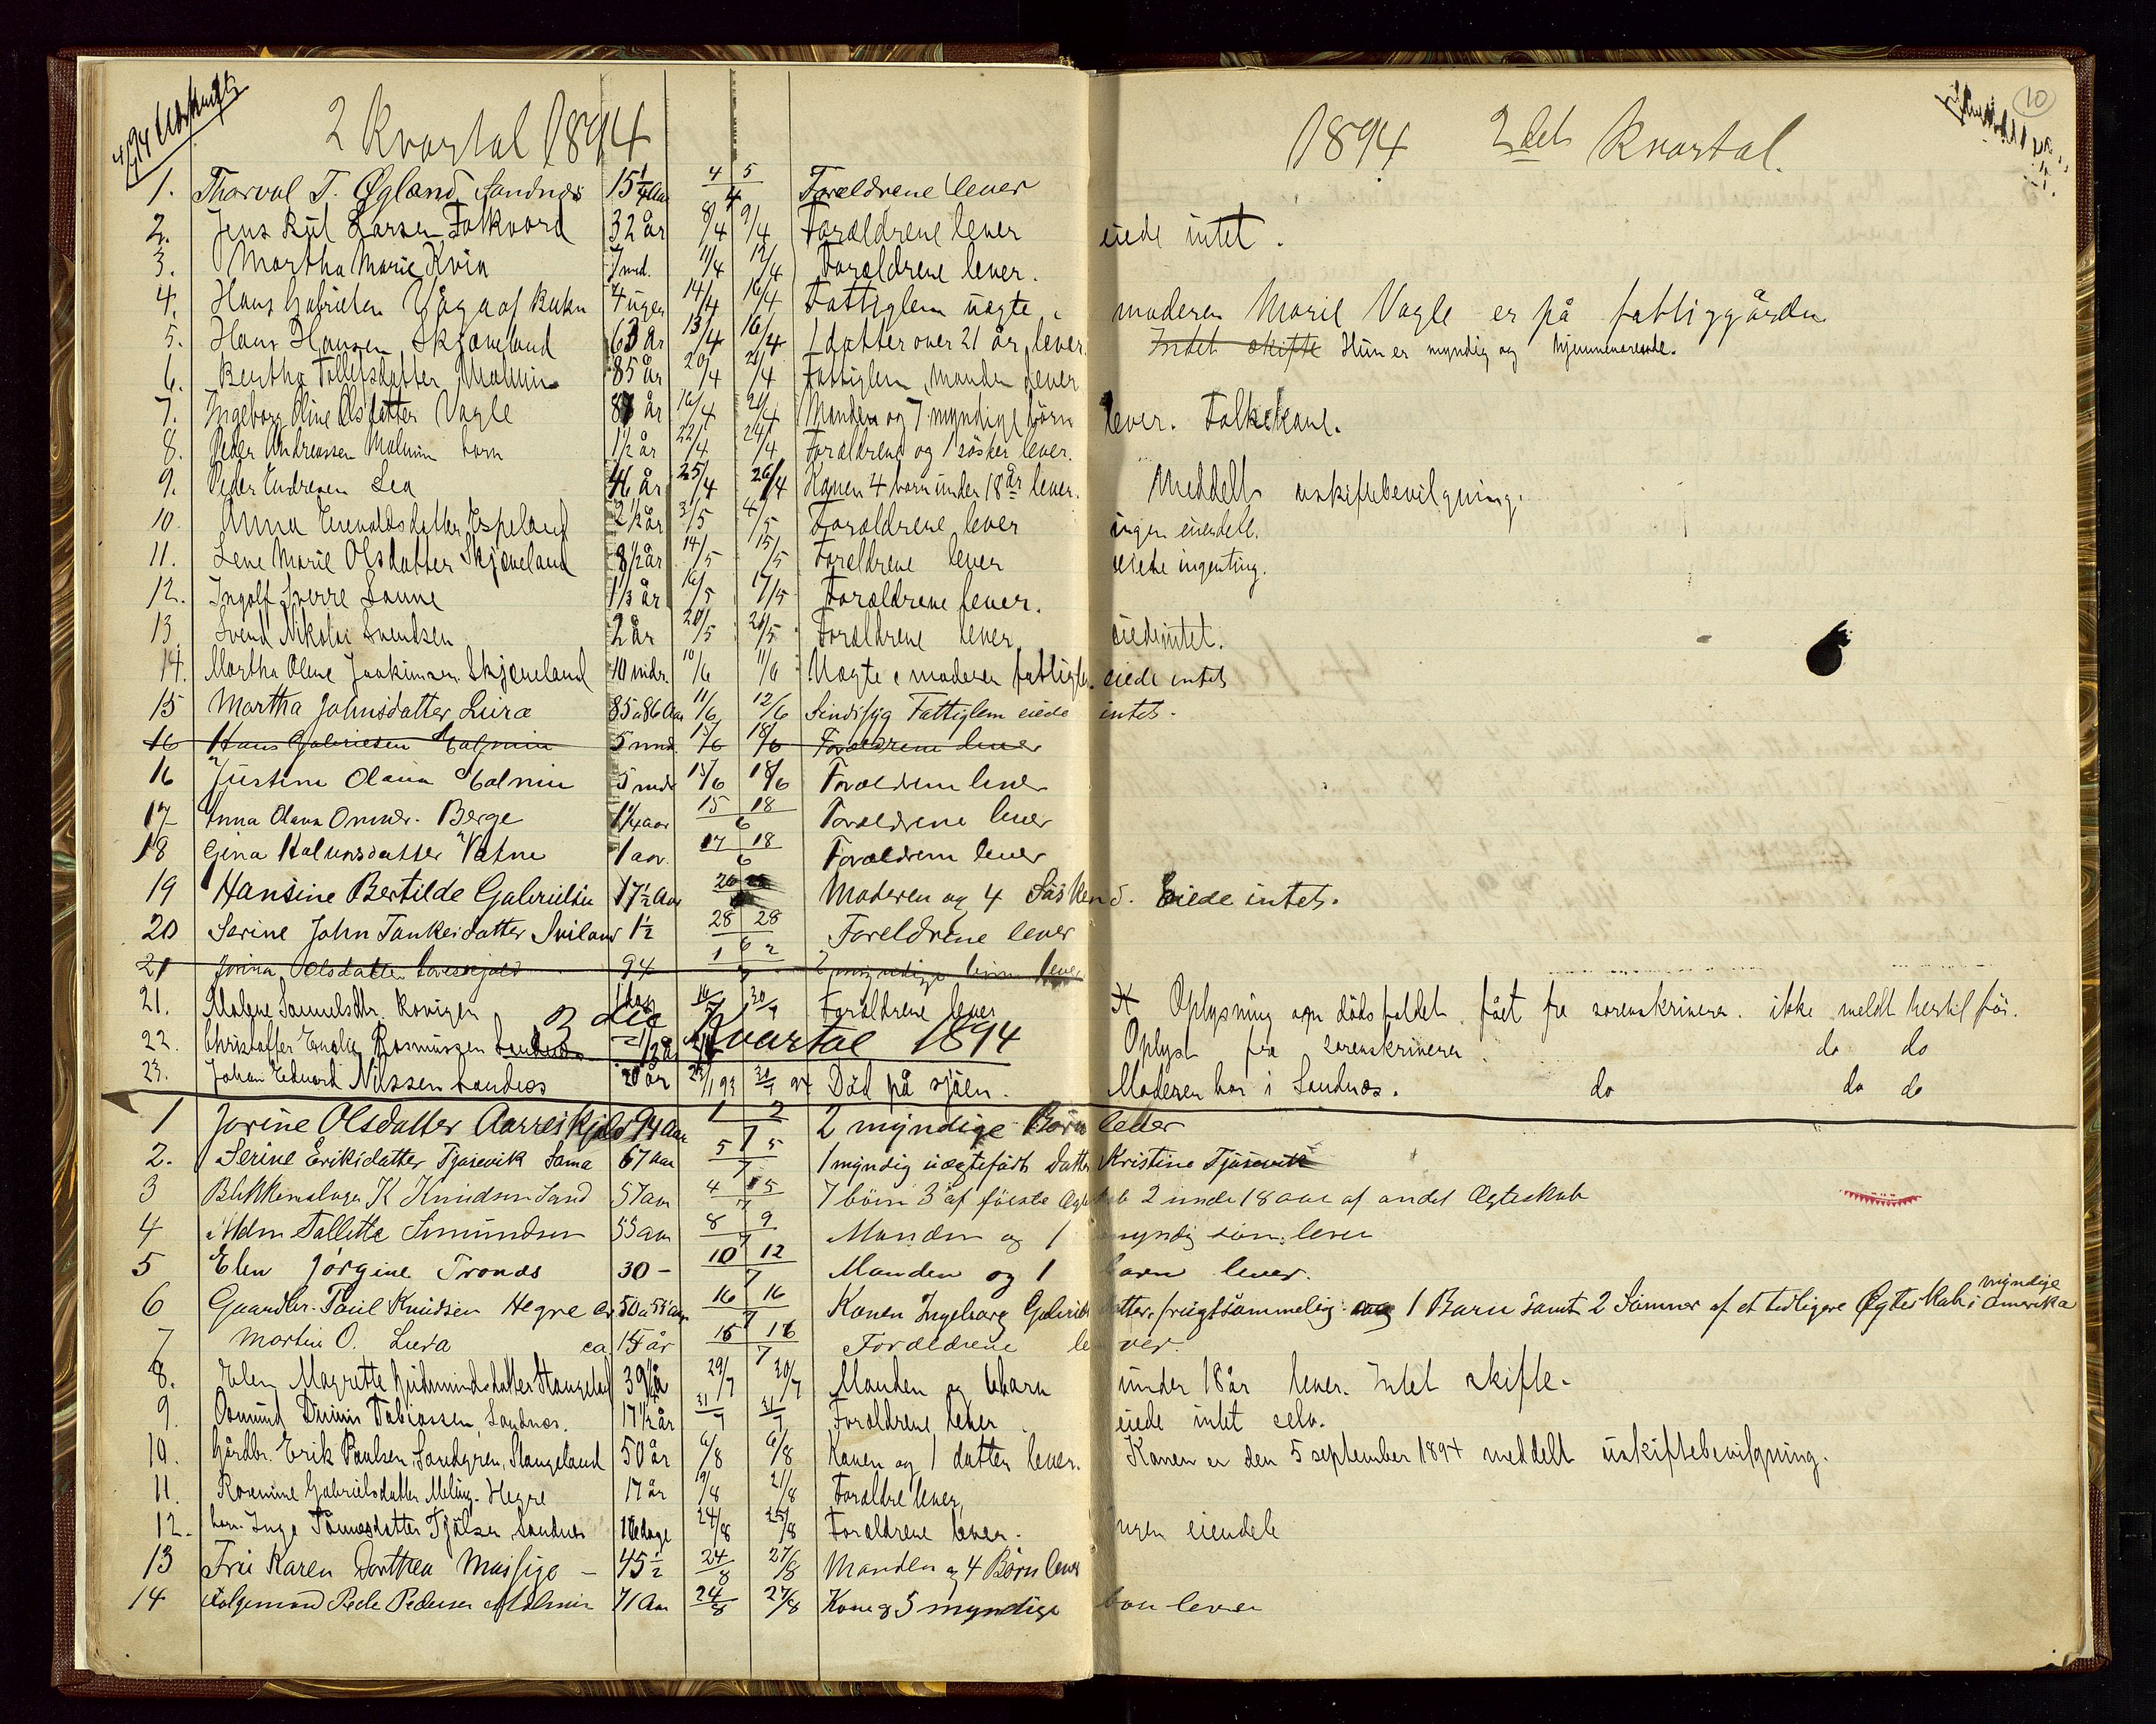 2 Kvartal 1894
1894 2det Kvartal.
10
1. Thorval T. Øgland, Sandnes 15 1/4 Aar 4 5/4 Forældrene lever
2. Jens Larsen Folkvord 32 år 8/4 9/4 Forældrene lever eiede intet.
3. Martha Marie Kvia 7 md. 11/4 12/4 Forældrene lever.
4. Hans Gabrielsen af 4 uger 14/4 16/4 Fattiglem uægte, moderen Marie Vagle er på fattiggården
5. Hans Hansen Skjæveland 63 år 13/4 16/4 1 datter over 21 år lever. Intet skifte Hun er myndig og hjemmeværende.
6. Bertha Tollefsdatter Malmin 85 år 20/4 21/4 Fattiglem, manden lever
7. Ingeborg Oline Olsdatter Vagle år 16/4 21/4 Manden og 7 myndige børn lever. Folkekone.
8. Peder Andreassen Malmin barn 1 1/2 år 22/4 24/4 Forældrene og 1 søsken lever.
9. Peder Endresen Lea 46 år 25/4 26/4 Konen 4 barn under 18 år lever. Meddelt uskiftebevilgning.
10. Anna Enevaldsdatter Espeland 2 1/2 år 3/5 4/5 Forældrene lever ingen eiendele.
11. Lene Marie Olsdatter Skjæveland 8 1/2 år 14/5 15/5 Foreldrene lever eiede ingenting.
12. Ingolf Sverre Sanne 1 1/3 år 16/5 17/5 Forældrene lever.
13. Svend Nikolai Svendsen 2 år 20/5 21/5 Forældrene lever eiede intet.
14. Martha Olene Joakimsen Skjæveland 10 mdr. 10/6 11/6 Uægte, moderen fattiglem. eiede intet
15 Martha Johnsdatter Lura 85 a 86 Aar 11/6 12/6 Sindssyg Fattiglem eiede intet.
16 Hans Gabrielsen Malmin 5 mnd. 15/6 18/6 Forældrene lever
16 Justine Olava Malmin 5 mdr 15/6 18/6 Forældrene lever
17 Anna Olava Ommer. Berge 1 1/4 aar 15 18/6 Forældrene lever
18 Gina Halvorsdatter Vatne 1 aar. 17 18/6 Forældrene lever
19 Hansine Bertilde Gabrielsen 17 1/2 Aar 26 Moderen og 4 Søskend. Eiede intet.
20 Serine John Tankesdatter Sviland 1 1/2 28 28/6 Foreldrene lever
21 Jorina Olsdatter 94 1 2/7 2 myndige børn lever
21. Malene Samuelsdtr. 1 dag 30/7 Forældrene lever X Oplysning om dødsfaldet fået fra sorenskriveren. ikke meldt hertil før.
3die Kvartal 1894
22. Christoffer Emolie Rasmussen 1/2 år Oplyst fra sorenskriveren. do do
23. Johan Edvard Nilssen Sandnæs 20 år 30/7 94 Død på sjøen. Moderen bor i Sandnæs. do do do
1 Jorine Olsdatter Aarreskjold 94 Aar 1 2/7 2 myndige Børn lever
2. Serine Eriksdatter Tjøsevik Soma 67 aar 5 5/7 1 myndig uægtefødt Datter Kristine Tjøsevik
3 Blikkenslager K Knudsen Sand 57 aar 4 5/7 7 børn 3 af første Ægteskab 2 under 18 aar af andet Ægteskab
4 Mdm Tallette Simundsen 55 aar 8 9/7 Manden og 1 myndig søn lever
5 Elen Jørgine Tronæs 30 – 10 12/7 Manden og 1 barn lever.
6 Gaardbr. Paul Knudsen Hegre 50 a 55 aar 16 16/7 Konen Ingeborg Gabrielsdatter, frugtsommelig 1 Barn samt 2 Sønner af et tidligere Ægteskab i Amerika myndige
7 Martin O. Lura ca 15 år 15 16/7 Forældrene lever.
8. Elen Magrette Gudmundsdatter Stangeland 39 1/2 å 29/7 30/7 Manden og barn under 18 år lever. Intet skifte.
9. Osmund Tobiassen, Sandnæs. 17 1/2 år 31/7 31/7 Forældrene lever eiede intet selv.
10. Gårdbr. Erik Paulsen Sandgren, Stangeland 50 år 6/8 6/8 Konen og 1 datter lever. Konen er den 5 september 1894 meddelt uskiftebevilgning.
11. Rosemine Gabrielsdatter Meling. Hegre 17 år 19/8 21/8 Forældre lever,
12. barn. Inga Tønnesdatter Tjølsen Sandnæs dage 24/8 25/8 Forældrene lever. Ingen eiendele
13 Fru Karen Dorthea Massige – 45 1/2 24/8 27/8 Manden og 4 Børn lever
14 Peder Pedersen Malmin 71 Aar 24/8 27/8 Kone og 5 myndige børn lever